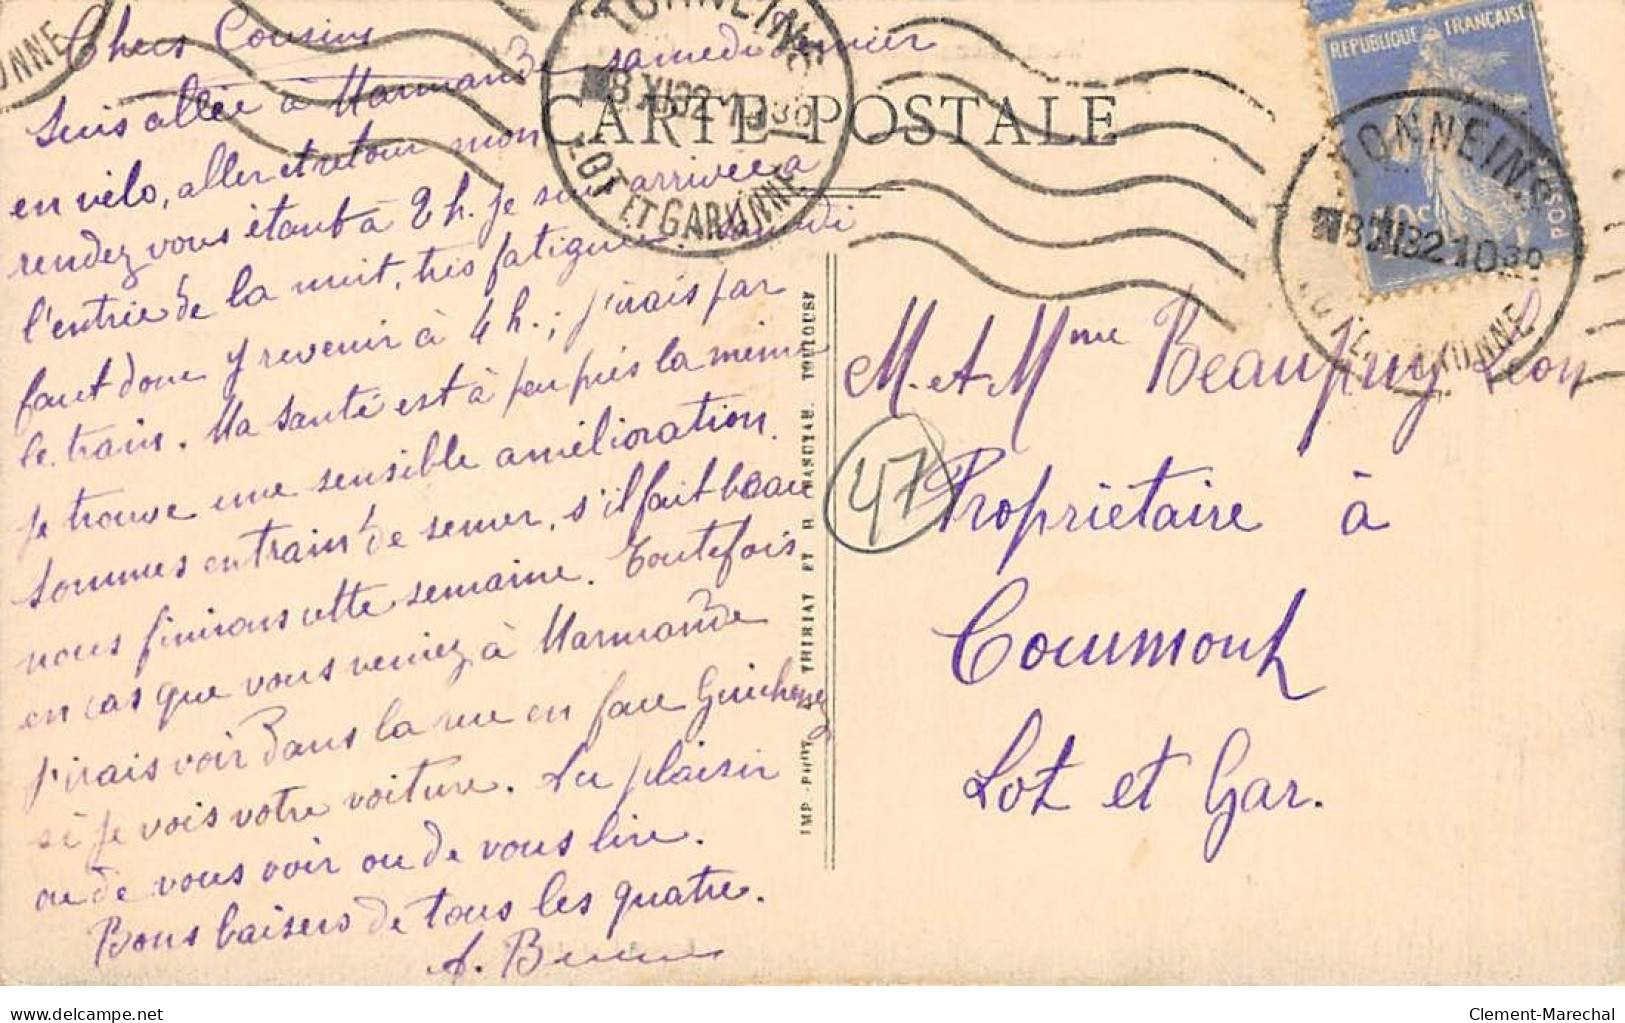 Chers Cousins
Suis allée à Marmande samedi dernier
en vélo, aller et retour mon
rendez vous étant à 2 h. je suis arrivée à
l'entrée de la nuit, très fatiguée. Samedi
faut donc y revenir à 4 h.; j'irais par
le train. Ma santé est à peu près la même
je trouve une sensible amélioration.
Sommes en train de semer, s'il fait beau
nous finirons cette semaine. Toutefois
en cas que vous veniez à Marmande
j'irais voir dans la rue en face Guichenez
si je vois votre voiture. Au plaisir
ou de vous voir ou de vous lire.
Bons baisers de tous les quatre.
A.
CARTE POSTALE
TONNEINS
8 XI 32
LOT ET GARONNE
IMP. PHOT. THIRIAT ET TOULOUSE
REPUBLIQUE FRANÇAISE
TONNEINS
8 XI 32 10 30
GARONNE
M. et Mme Beaupuy Léon
47
Propriétaire à
Coumont
Lot et Gar.
delcampe.net
Clement-Marechal